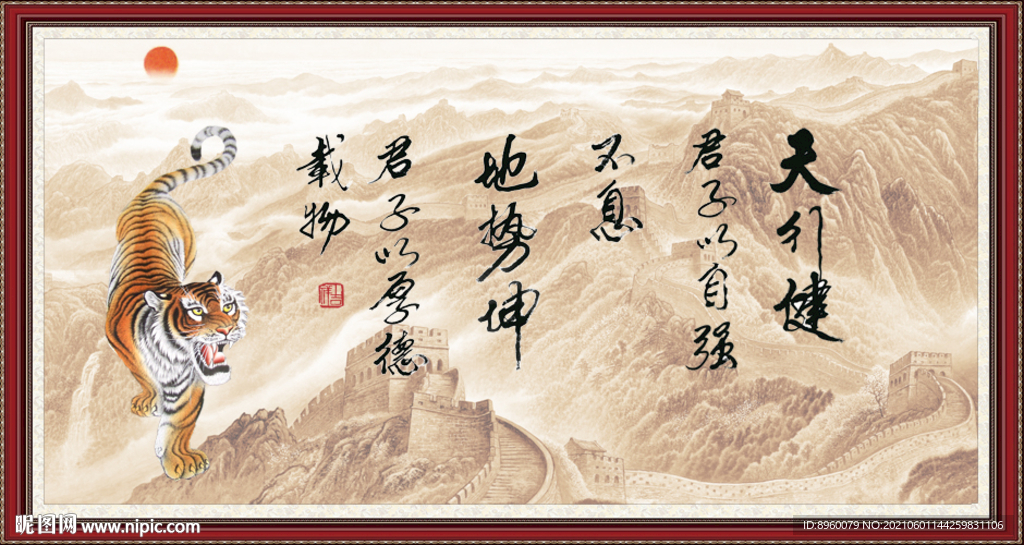 天行健
君子以自强
不息
地势坤
君子以厚德
载物
昵图网 www.nipic.com
ID:8960079 NO:20210601144259831106